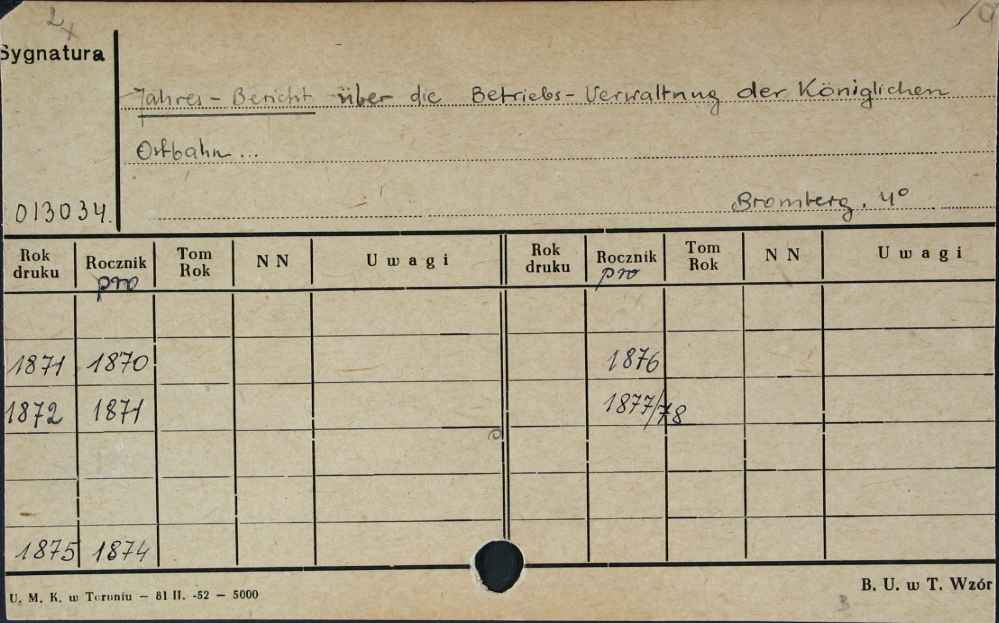 2x
Sygnatura
Jahres-Bericht über die Betriebs-Verwaltung der Königlichen
Ostbahn...
013034.
Bromberg. 4°
Rok druku Rocznik pro Tom Rok NN Uwagi Rok druku Rocznik pro Tom Rok NN Uwagi
1871 1870 1876
1872 1871 1877/78
1875 1874
U. M. K. w Toruniu — 81 II. -52 — 5000
B. U. w T. Wzór